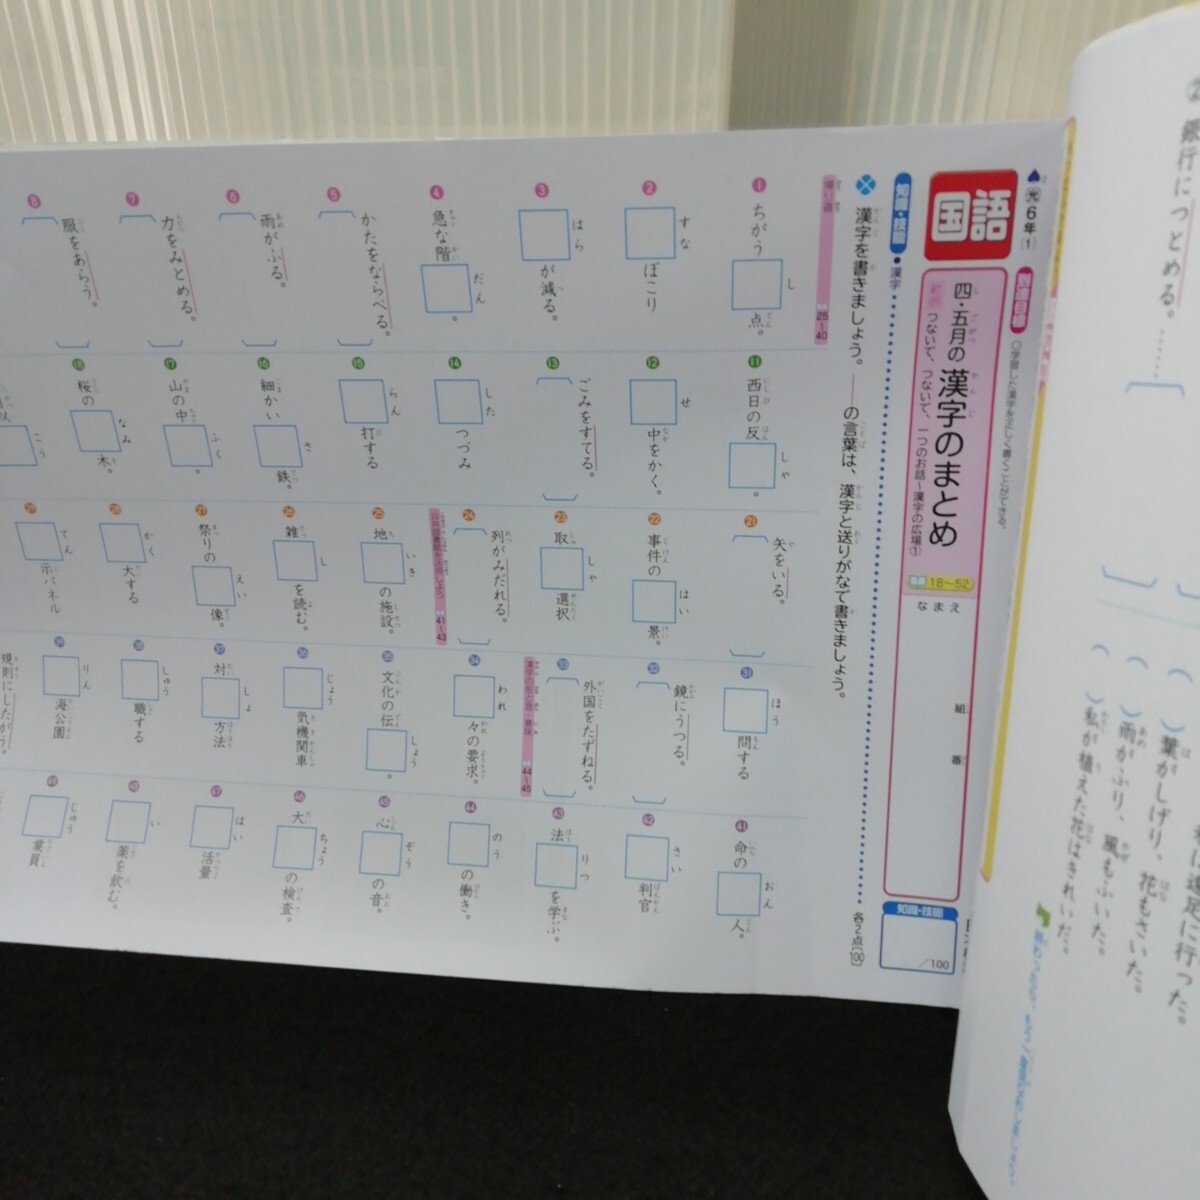 光6年(1)
国語
四・五月の漢字のまとめ
つないで、つないで、一つのお話~漢字の広場①
18~52
到達目標
○学習した漢字を正しく書くことができる。
なまえ
組
番
知識・技能
/100
知識・技能
●漢字
漢字を書きましょう。――の言葉は、漢字と送りがなで書きましょう。
各2点(100)
帰り道
25~40
1 ちがう し 点。
2 すな ぼこり
3 はら が減る。
4 急な階 だん 。
5 かたをならべる。
6 雨がふる。
7 力をみとめる。
8 服をあらう。
11 西日の反 しゃ 。
12 せ 中をかく。
13 ごみをすてる。
14 した つづみ
15 らん 打する
16 細かい さ 鉄。
17 山の中 ふく 。
18 桜の なみ 木。
こう
21 矢をいる。
22 事件の はい 景。
23 取 しゃ 選択
24 列がみだれる。
公共図書館を活用しよう
41~43
25 地 いき の施設。
26 雑 し を読む。
27 祭りの えい 像。
28 かく 大する
29 てん 示パネル
31 ほう 問する
32 鏡にうつる。
33 外国をたずねる。
漢字の形と音・意味
44~45
34 われ 々の要求。
35 文化の伝 しょう 。
36 じょう 気機関車
37 対 しょ 方法
38 しゅう 職する
39 りん 海公園
規則にしたがう。
41 命の おん 人。
42 さい 判官
43 法 りつ を学ぶ。
44 のう の働き。
45 心 ぞう の音。
46 大 ちょう の検査。
47 はい 活量
48 い 薬を飲む。
49 じゅう 業員
② 銀行につとめる。
遠足に行った。
( )葉がしげり、花もさいた。
( )雨がふり、風もふいた。
( )私が植えた花はきれいだ。